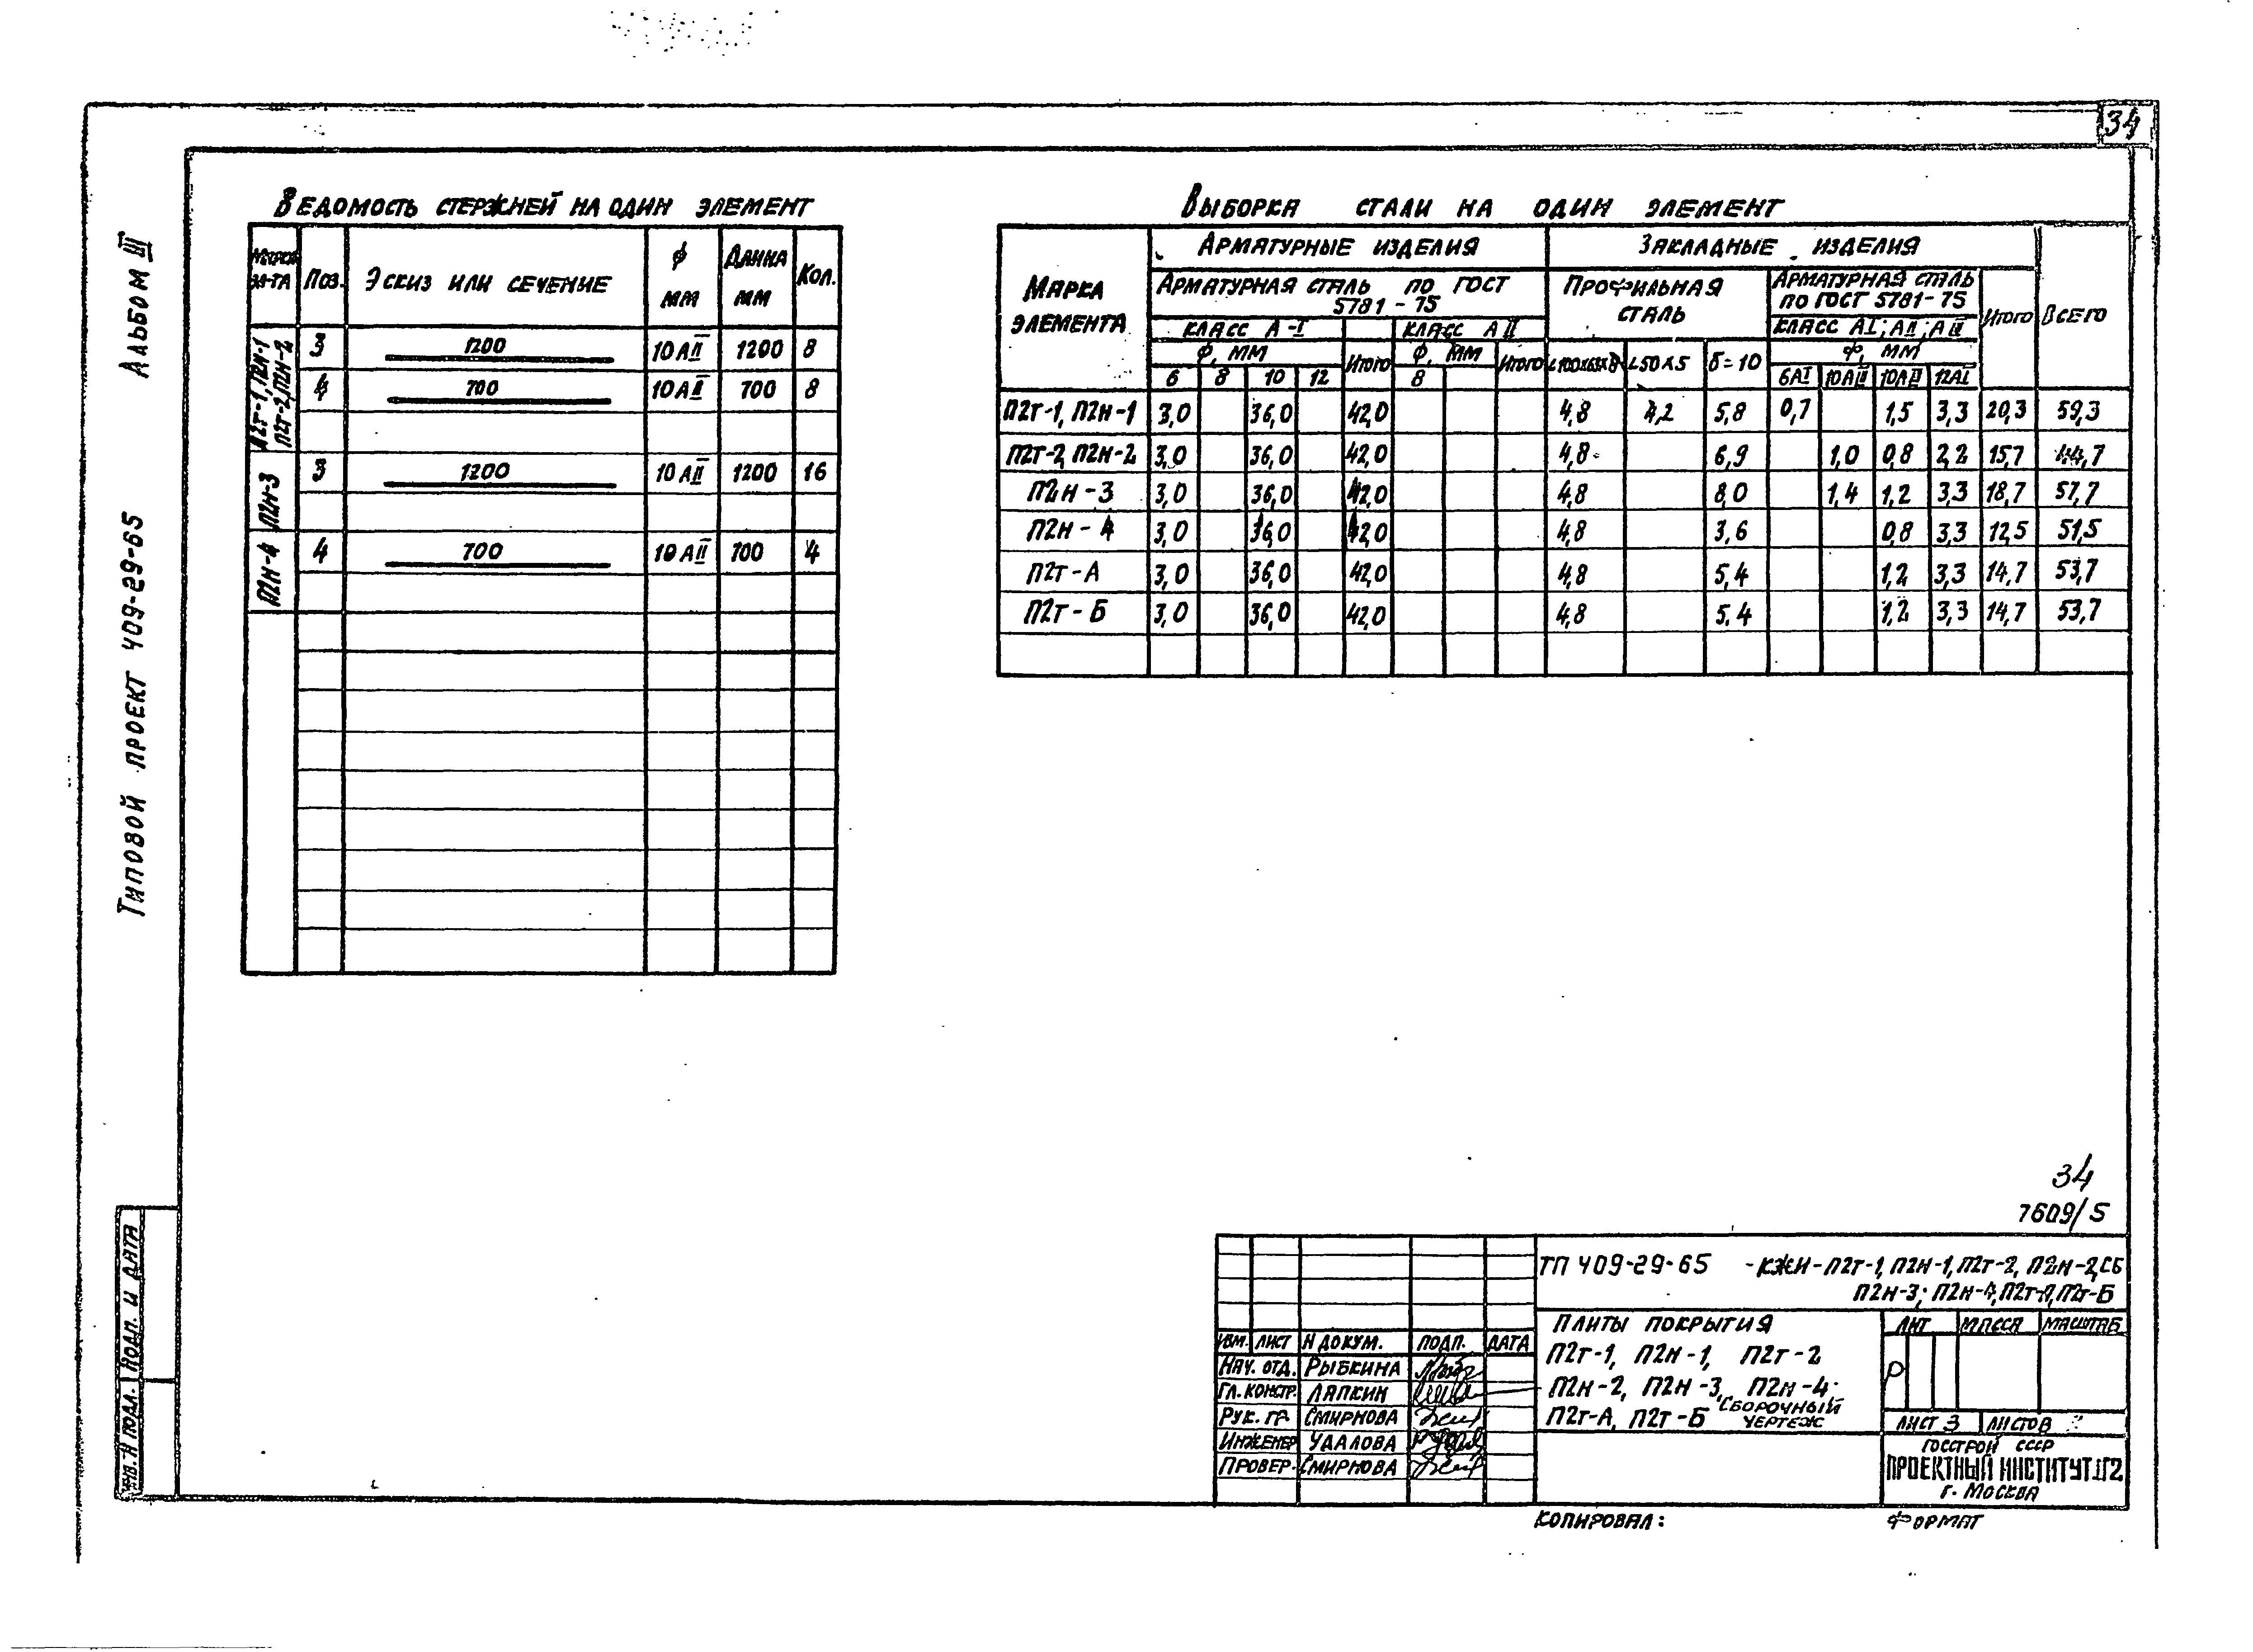 34
Альбом III
Типовой проект 409-29-65
Ведомость стержней на один элемент
Марка эл-та | Поз. | Эскиз или сечение | ф мм | Длина мм | Кол.
П2т-1, П2н-1 П2т-2, П2н-2 | 3 | 1200 | 10 АII | 1200 | 8
4 | 700 | 10 АII | 700 | 8
П2н-3 | 3 | 1200 | 10 АII | 1200 | 16
П2н-4 | 4 | 700 | 10 АII | 700 | 4
Выборка стали на один элемент
Марка элемента | Арматурные изделия | Закладные изделия | Всего
Арматурная сталь по ГОСТ 5781-75 | Профильная сталь | Арматурная сталь по ГОСТ 5781-75 | Итого
Класс А-I | Итого | Класс АII | Итого | Класс АI; АII; АIII
ф, мм | ф, мм | L50х5 | δ=10 | ф, мм
6 | 8 | 10 | 12 | 8 | 6АI | 10АIII | 10АII | 12АI
П2т-1, П2н-1 | 3,0 | 36,0 | 42,0 | 4,8 | 4,2 | 5,8 | 0,7 | 1,5 | 3,3 | 20,3 | 59,3
П2т-2, П2н-2 | 3,0 | 36,0 | 42,0 | 4,8 | 6,9 | 1,0 | 0,8 | 2,2 | 15,7 | 44,7
П2н-3 | 3,0 | 36,0 | 42,0 | 4,8 | 8,0 | 1,4 | 1,2 | 3,3 | 18,7 | 57,7
П2н-4 | 3,0 | 36,0 | 42,0 | 4,8 | 3,6 | 0,8 | 3,3 | 12,5 | 51,5
П2т-А | 3,0 | 36,0 | 42,0 | 4,8 | 5,4 | 1,2 | 3,3 | 14,7 | 53,7
П2т-Б | 3,0 | 36,0 | 42,0 | 4,8 | 5,4 | 1,2 | 3,3 | 14,7 | 53,7
34
7609/5
ТП 409-29-65 -КЖИ-П2т-1, П2н-1, П2т-2, П2н-2, СБ
П2н-3; П2н-4, П2т-А, П2т-Б
Изм. | Лист | N докум. | Подп. | Дата
Нач. отд. Рыбкина
Гл. констр. Ляпкин
Рук. гр. Смирнова
Инженер Удалова
Провер. Смирнова
Плиты покрытия
П2т-1, П2н-1, П2т-2
П2н-2, П2н-3, П2н-4;
П2т-А, П2т-Б Сборочный чертеж
Лит | Масса | Масштаб
Р
Лист 3 | Листов
Госстрой СССР
Проектный институт №2
г. Москва
Копировал:
Формат
Подп. и дата
Инв. N подл.